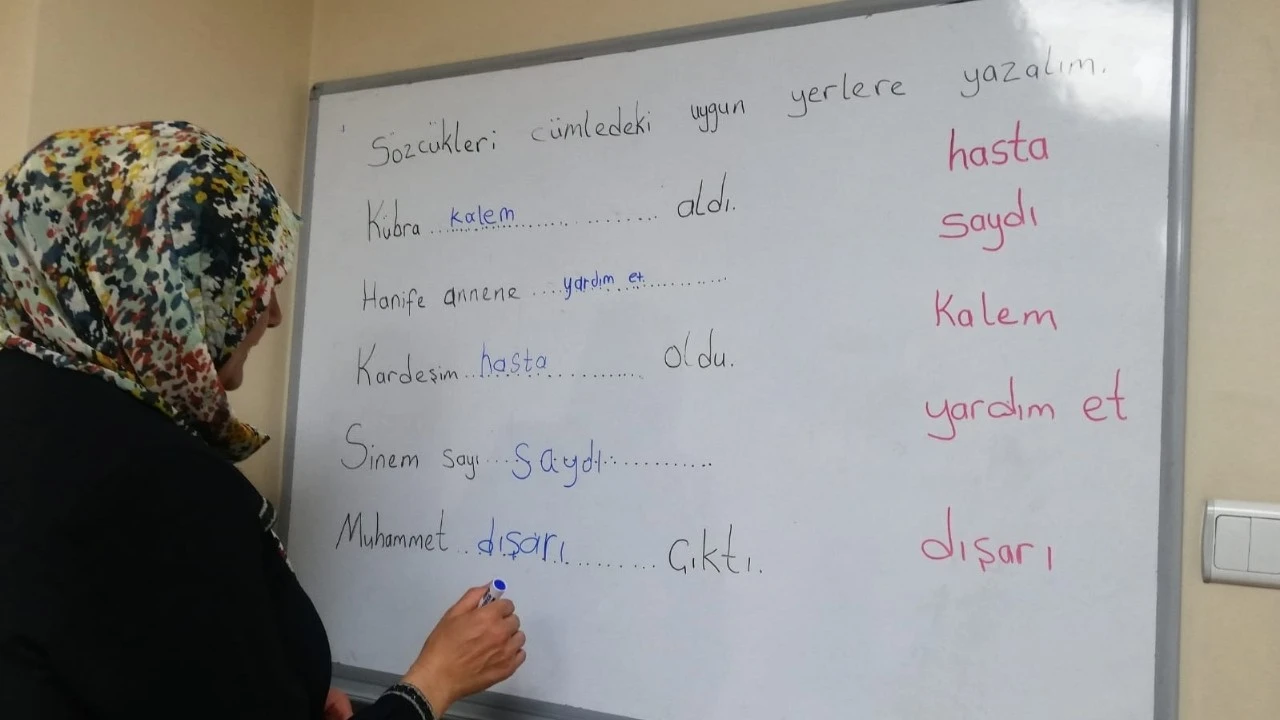 Sözcükleri cümledeki uygun yerlere yazalım.
Kübra ..kalem.............. aldı.
Hanife annene ....yardım et...........
Kardeşim ..hasta............ oldu.
Sinem sayı ...saydı............
Muhammet ..dışarı............ Çıktı.
hasta
saydı
Kalem
yardım et
dışarı